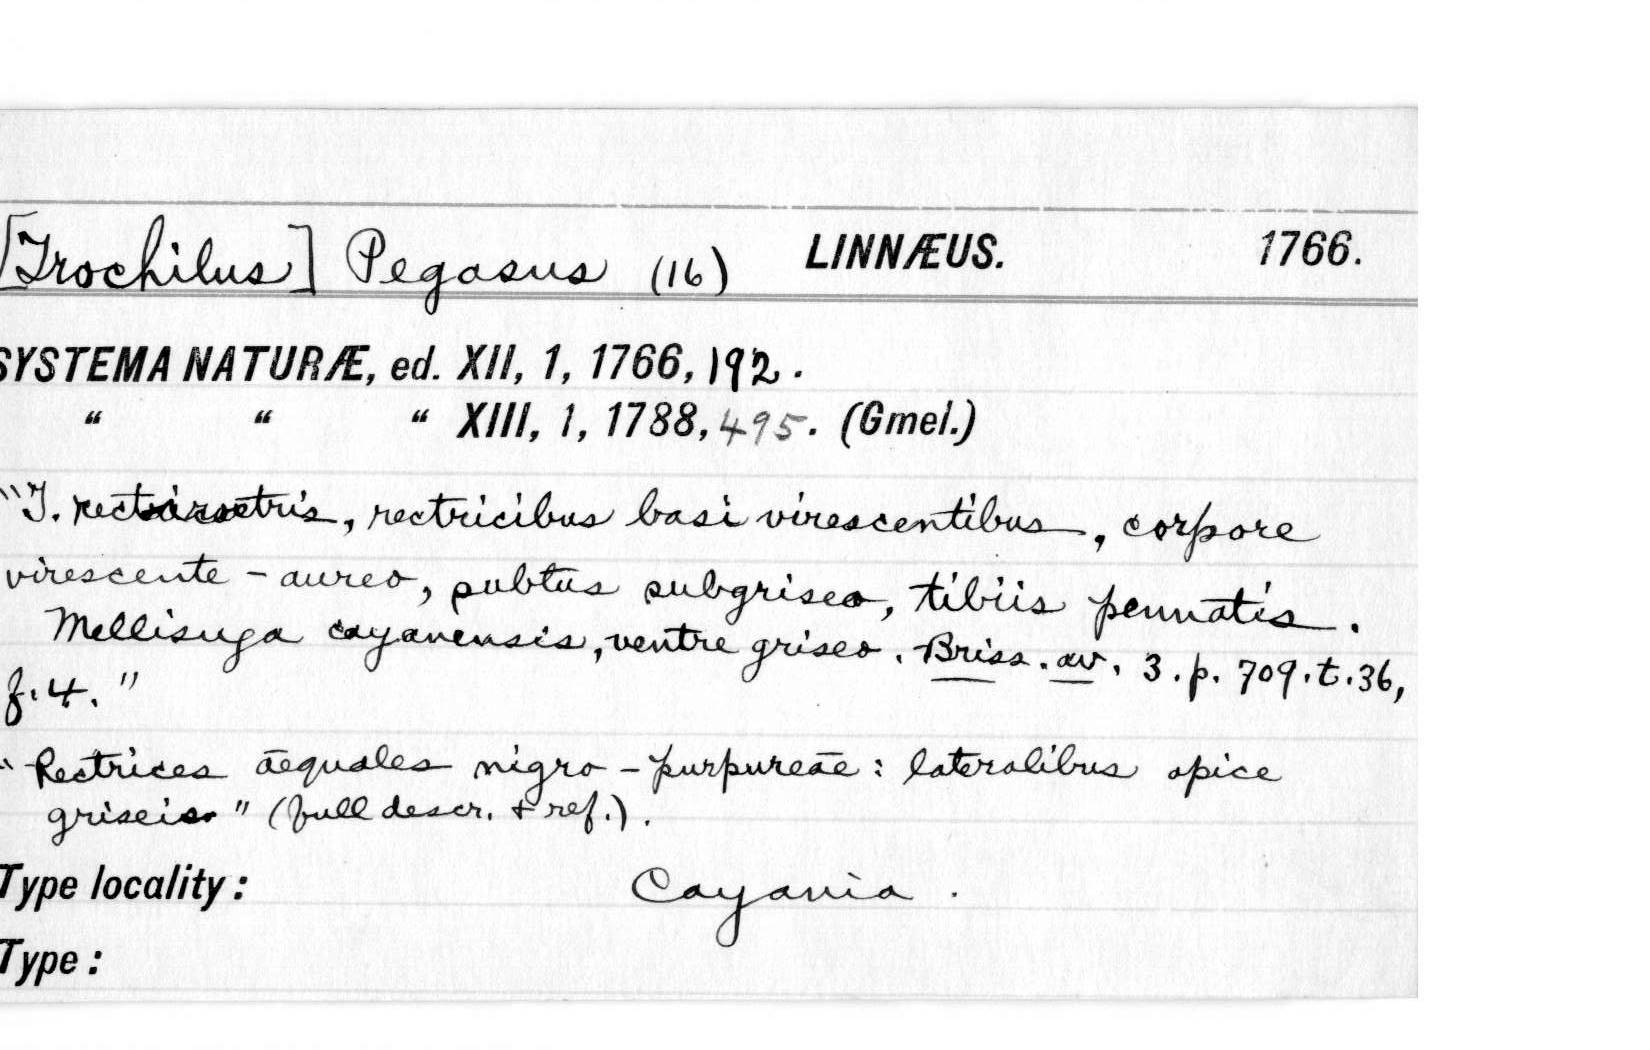 [Trochilus] Pegasus (16) LINNÆUS. 1766.
SYSTEMA NATURÆ, ed. XII, 1, 1766, 192.
" " " XIII, 1, 1788, 495. (Gmel.)
"T. rectirostris, rectricibus basi virescentibus, corpore
virescente-aureo, subtus subgriseo, tibiis pennatis.
Mellisuga cayanensis, ventre griseo. Briss. av. 3. p. 709. t. 36,
f. 4."
"Rectrices aequales nigro-purpureae: lateralibus apice
griseis" (full descr. & ref.).
Type locality: Cayania.
Type: